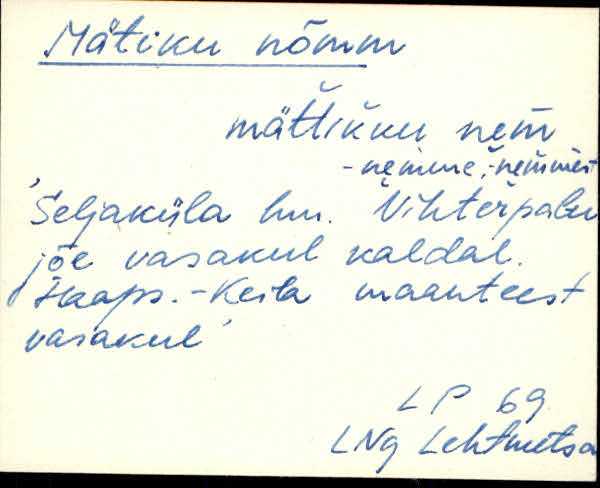 Mätiku nõmm
mät̆t̆ik̆ku nem̆
-nemme, -nem̆mēst
'Seljaküla hm. Vihterpalu
jõe vasakul kaldal.
Haaps.-Keila maanteest
vasakul'
LP 69
LNg Lehtmetsa